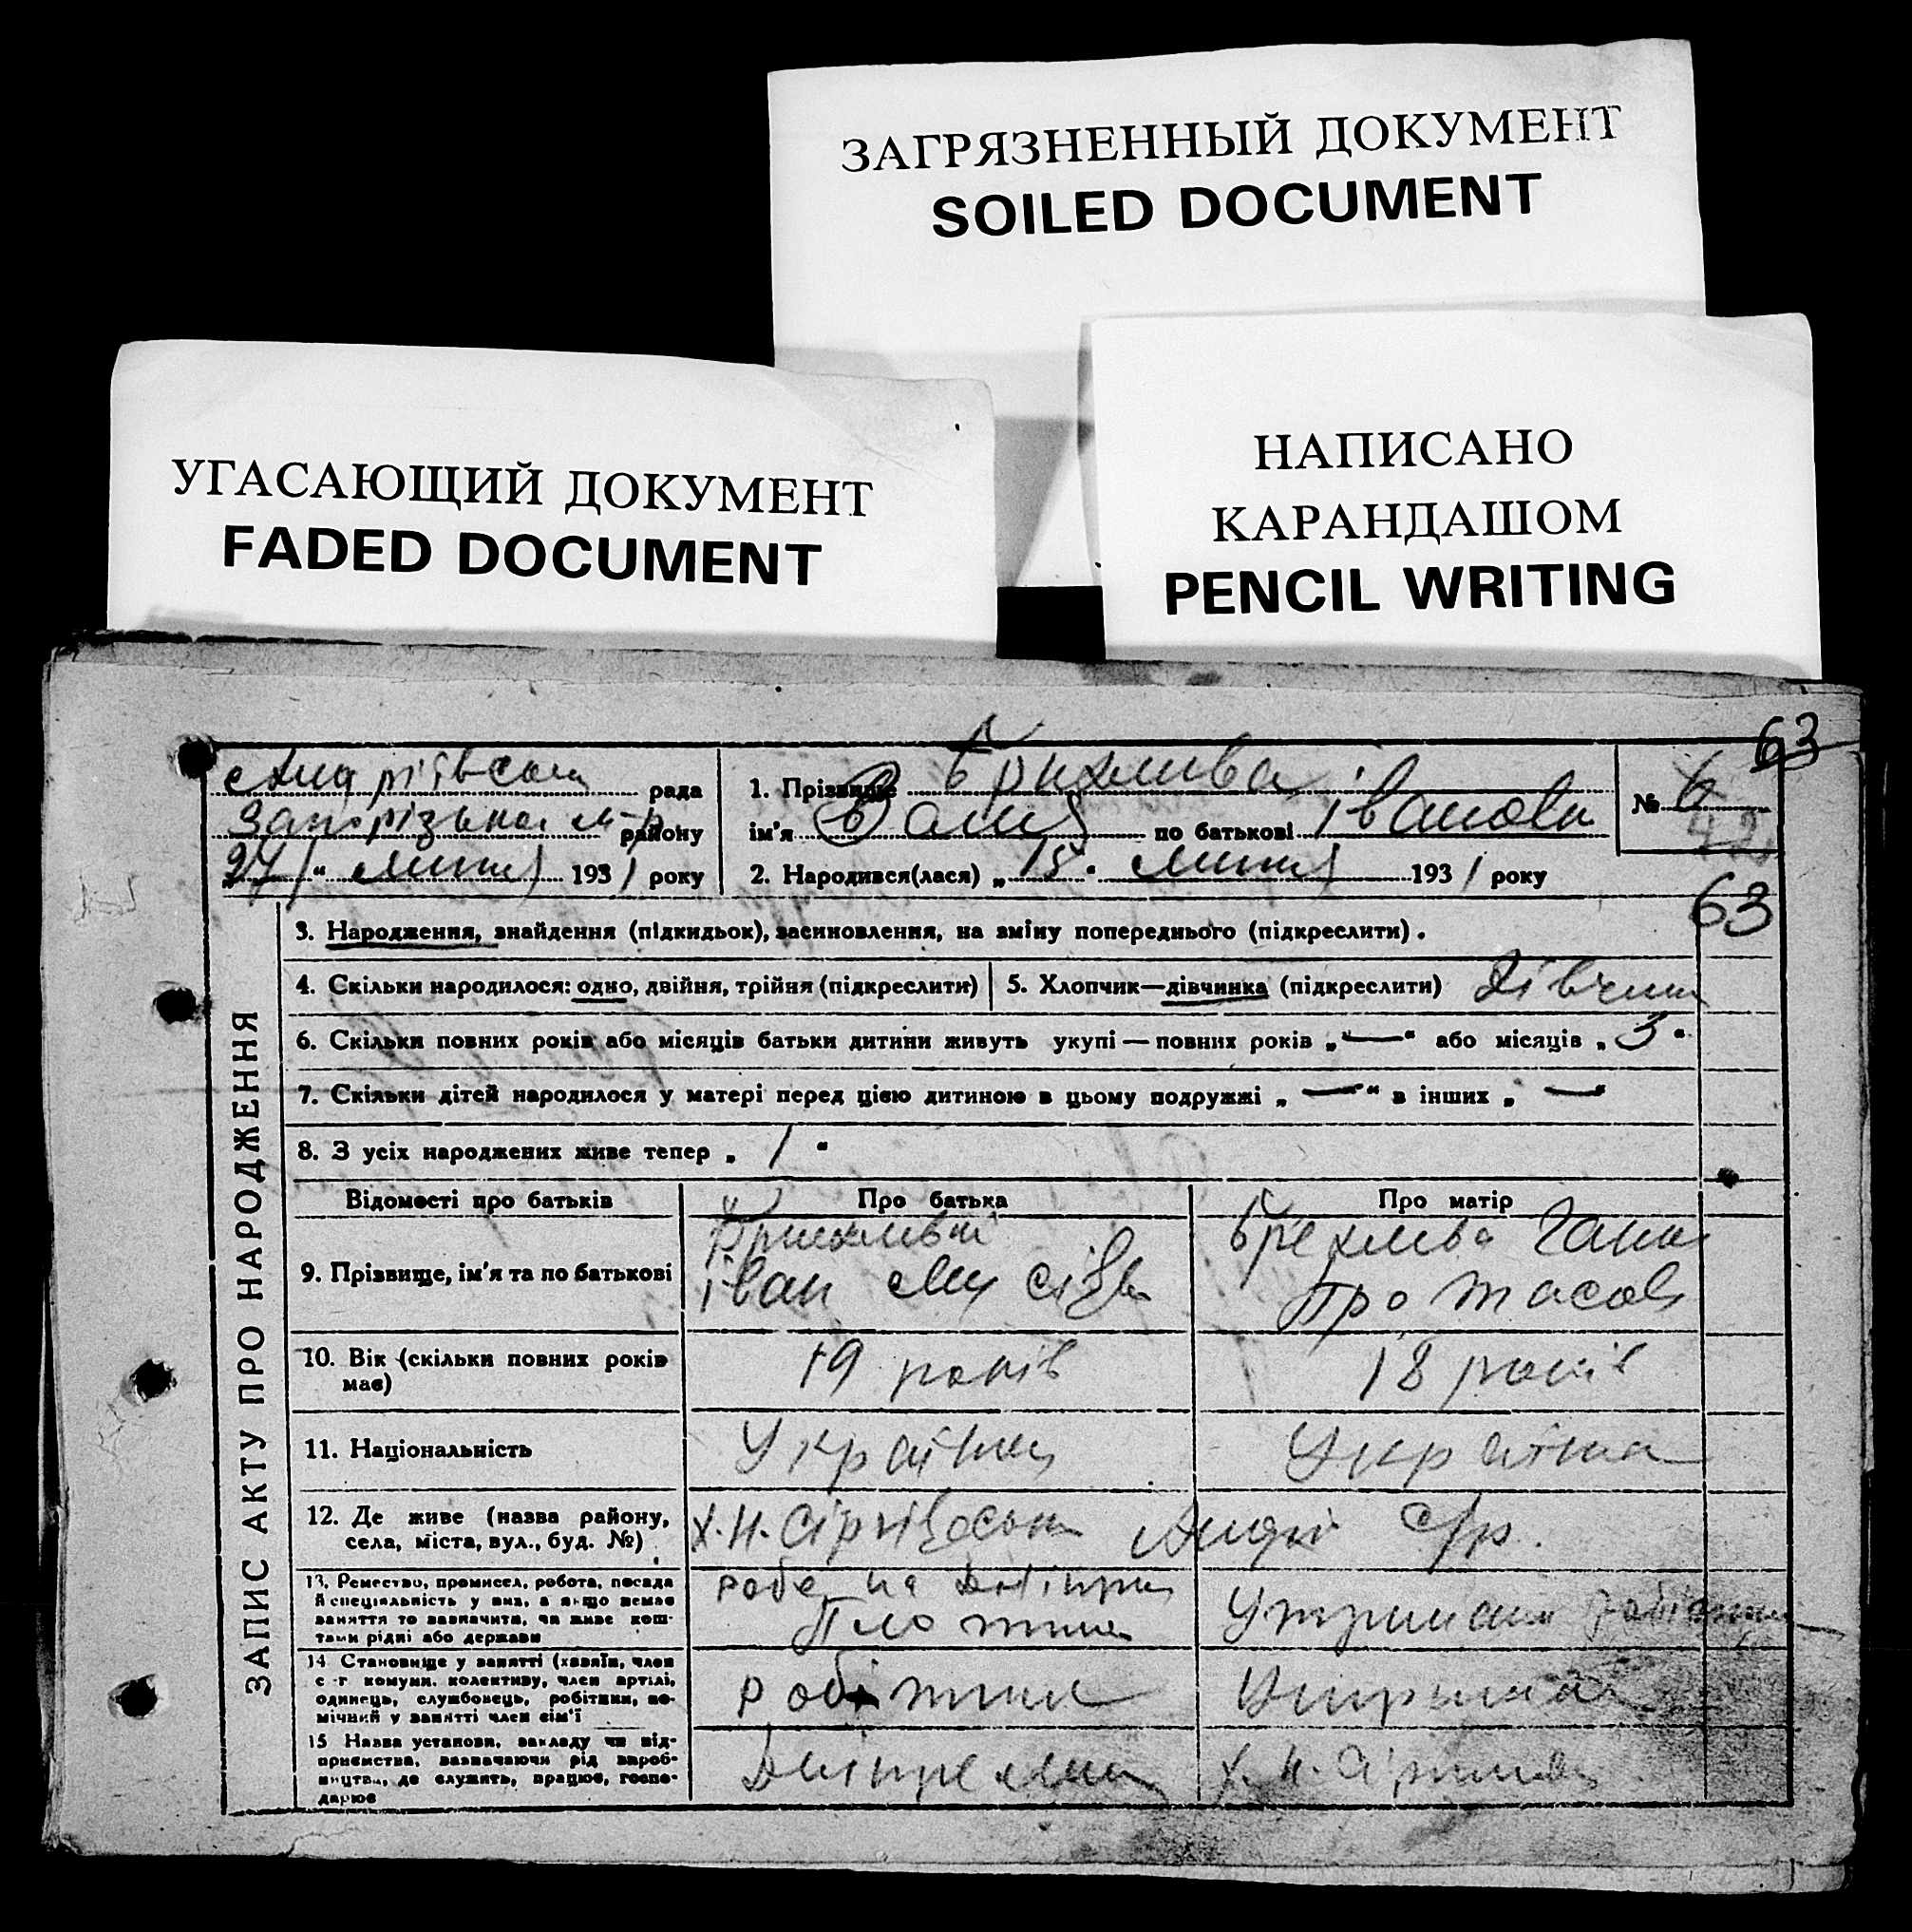 ЗАГРЯЗНЕННЫЙ ДОКУМЕНТ
SOILED DOCUMENT
УГАСАЮЩИЙ ДОКУМЕНТ
FADED DOCUMENT
НАПИСАНО
КАРАНДАШОМ
PENCIL WRITING
63
рада
району
„27“ липня 1931 року
1. Прізвище
ім'я Валя по батькові Івановн
2. Народився(лася) „15“ липня 1931 року
№ 6
42
63
ЗАПИС АКТУ ПРО НАРОДЖЕННЯ
3. Народження, знайдення (підкидьок), засиновлення, на зміну попереднього (підкреслити).
4. Скільки народилося: одно, двійня, трійня (підкреслити)
5. Хлопчик—дівчинка (підкреслити) Дівчин
6. Скільки повних років або місяців батьки дитини живуть укупі — повних років „—“ або місяців „3“
7. Скільки дітей народилося у матері перед цією дитиною в цьому подружжі „—“ в інших „—“
8. З усіх народжених живе тепер „1“
Відомості про батьків Про батька Про матір
9. Прізвище, ім'я та по батькові
Іван
Брехлива Ганна
Протасов
10. Вік (скільки повних років має) 19 років 18 років
11. Національність Українец Україна
12. Де живе (назва району,
села, міста, вул., буд. №)
с/р.
13. Ремество, промисел, робота, посада
й спеціяльність у них, а якщо немає
заняття то зазначити, чи живе кош-
тами рідні або держави
на
14. Становище у занятті (хазяїн, член
с-г комуни, колективу, член артілі,
одинець, службовець, робітник, по-
мічний у занятті член сім'ї
робітник
15. Назва установи, закладу чи під-
приємства, зазначаючи рід вироб-
ництва, де служить, працює, госпо-
дарює